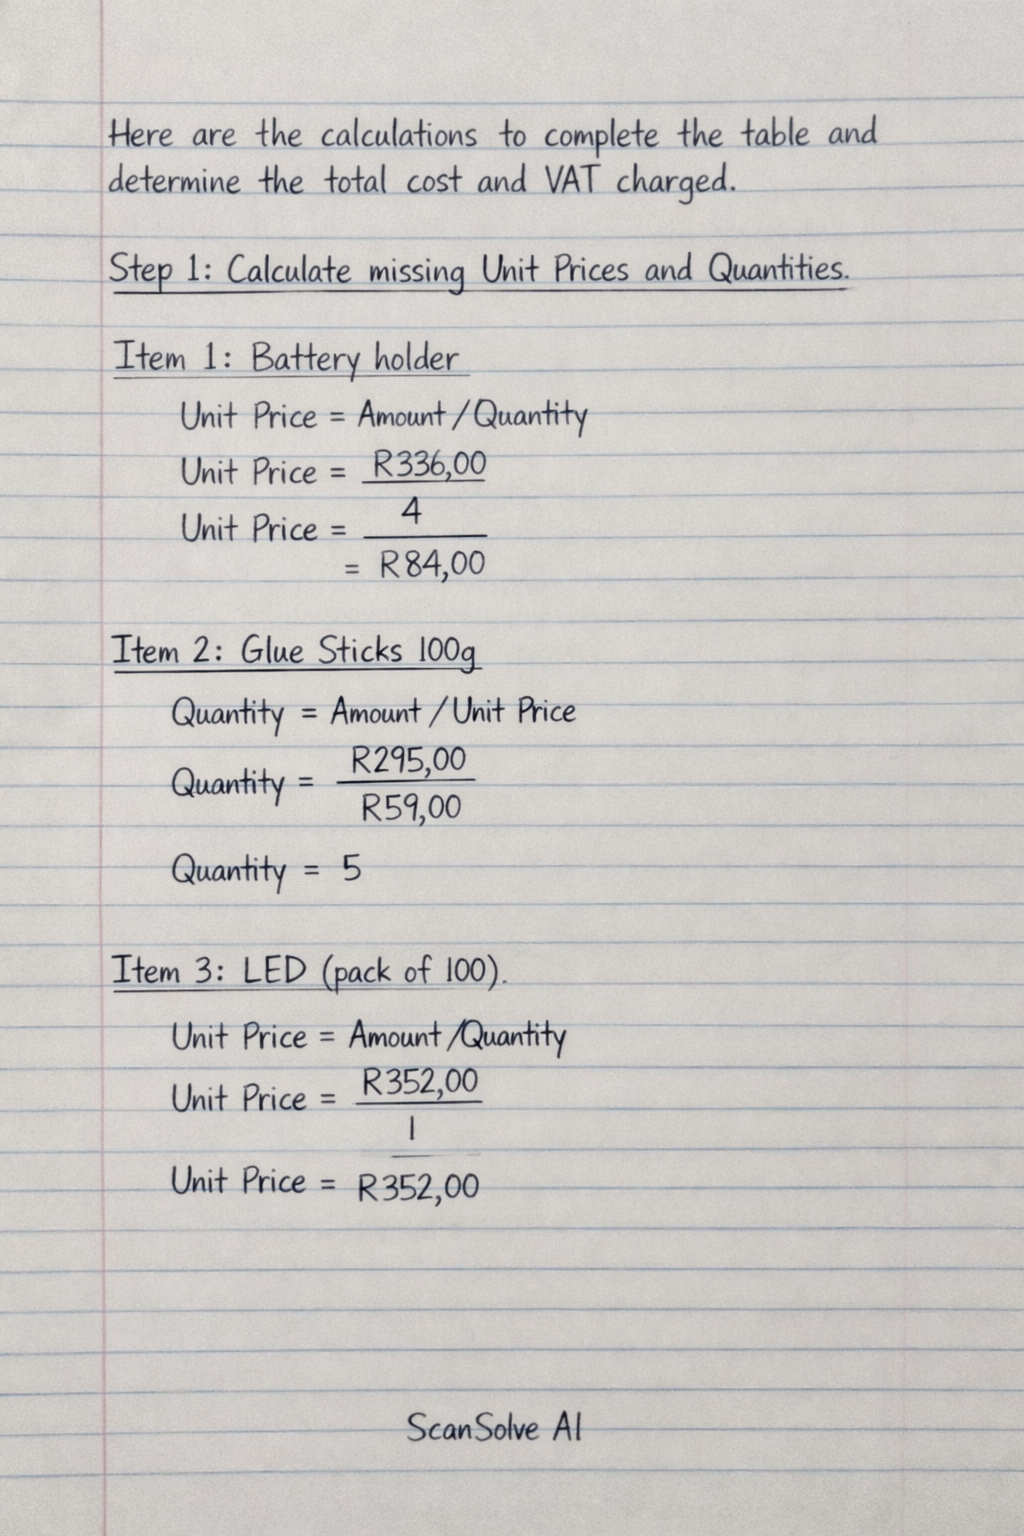 Here are the calculations to complete the table and
determine the total cost and VAT charged.
Step 1: Calculate missing Unit Prices and Quantities.
Item 1: Battery holder
Unit Price = Amount / Quantity
Unit Price = R336,00
4
Unit Price =
= R84,00
Item 2: Glue Sticks 100g
Quantity = Amount / Unit Price
Quantity = R295,00
R59,00
Quantity = 5
Item 3: LED (pack of 100).
Unit Price = Amount / Quantity
Unit Price = R352,00
1
Unit Price = R352,00
ScanSolve AI